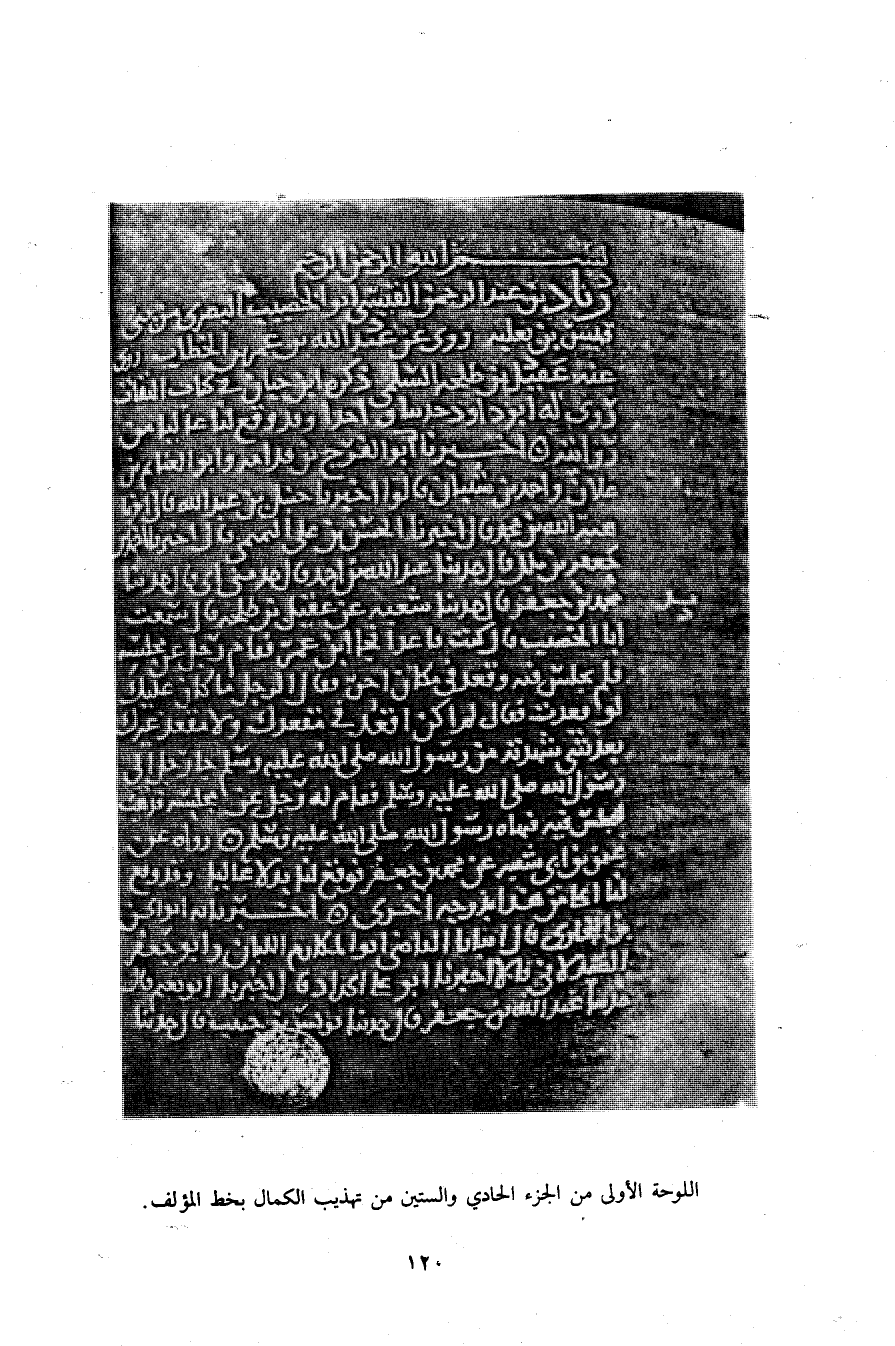 بسم الله الرحمن الرحيم
زياد بن عبد الرحمن القيسي ابو الخصيب البصري من بني
قيس بن ثعلبة روى عن عبد الله بن عمر بن الخطاب روى
عنه عقيل بن طلحة السلمي ذكره ابن حبان في كتاب الثقات
روى له ابو داود حديثا واحدا وقد وقع لنا عاليا من
روايته ۞ اخبرنا ابو الفرج بن قدامة وابو الغنائم بن
علان واحمد بن شيبان قالوا اخبرنا حنبل بن عبد الله قال اخبرنا
هبة الله بن محمد قال اخبرنا الحسن بن علي التميمي قال اخبرنا احمد بن
جعفر بن مالك قال حدثنا عبد الله بن احمد قال حدثني ابي قال حدثنا
محمد بن جعفر قال حدثنا شعبة عن عقيل بن طلحة قال سمعت
ابا الخصيب قال كنت قاعدا فجا ابن عمر فقام رجل عن مجلسه
فلم يجلس فيه وقعد في مكان اخر فقال الرجل ما كان عليك
لو قعدت فقال لم اكن اقعد في مقعدك ولا مقعد غيرك
بعد شي شهدته من رسول الله صلى الله عليه وسلم جا رجل الى
رسول الله صلى الله عليه وسلم فقام له رجل عن مجلسه فذهب
ليجلس فيه فنهاه رسول الله صلى الله عليه وسلم ۞ رواه عن
عثمن بن ابي شيبة عن محمد بن جعفر فوقع لنا بدلا عاليا ووقع
لنا اعلا من هذا بدرجة اخرى ۞ اخبرنا به ابو الحسن
بن البخاري قال انبانا القاضي ابو المكارم اللبان وابو جعفر
الصيدلاني قالا اخبرنا ابو علي الحداد قال اخبرنا ابو نعيم قال
حدثنا عبد الله بن جعفر قال حدثنا يونس بن حبيب قال حدثنا
اللوحة الأولى من الجزء الحادي والستين من تهذيب الكمال بخط المؤلف.
١٢٠